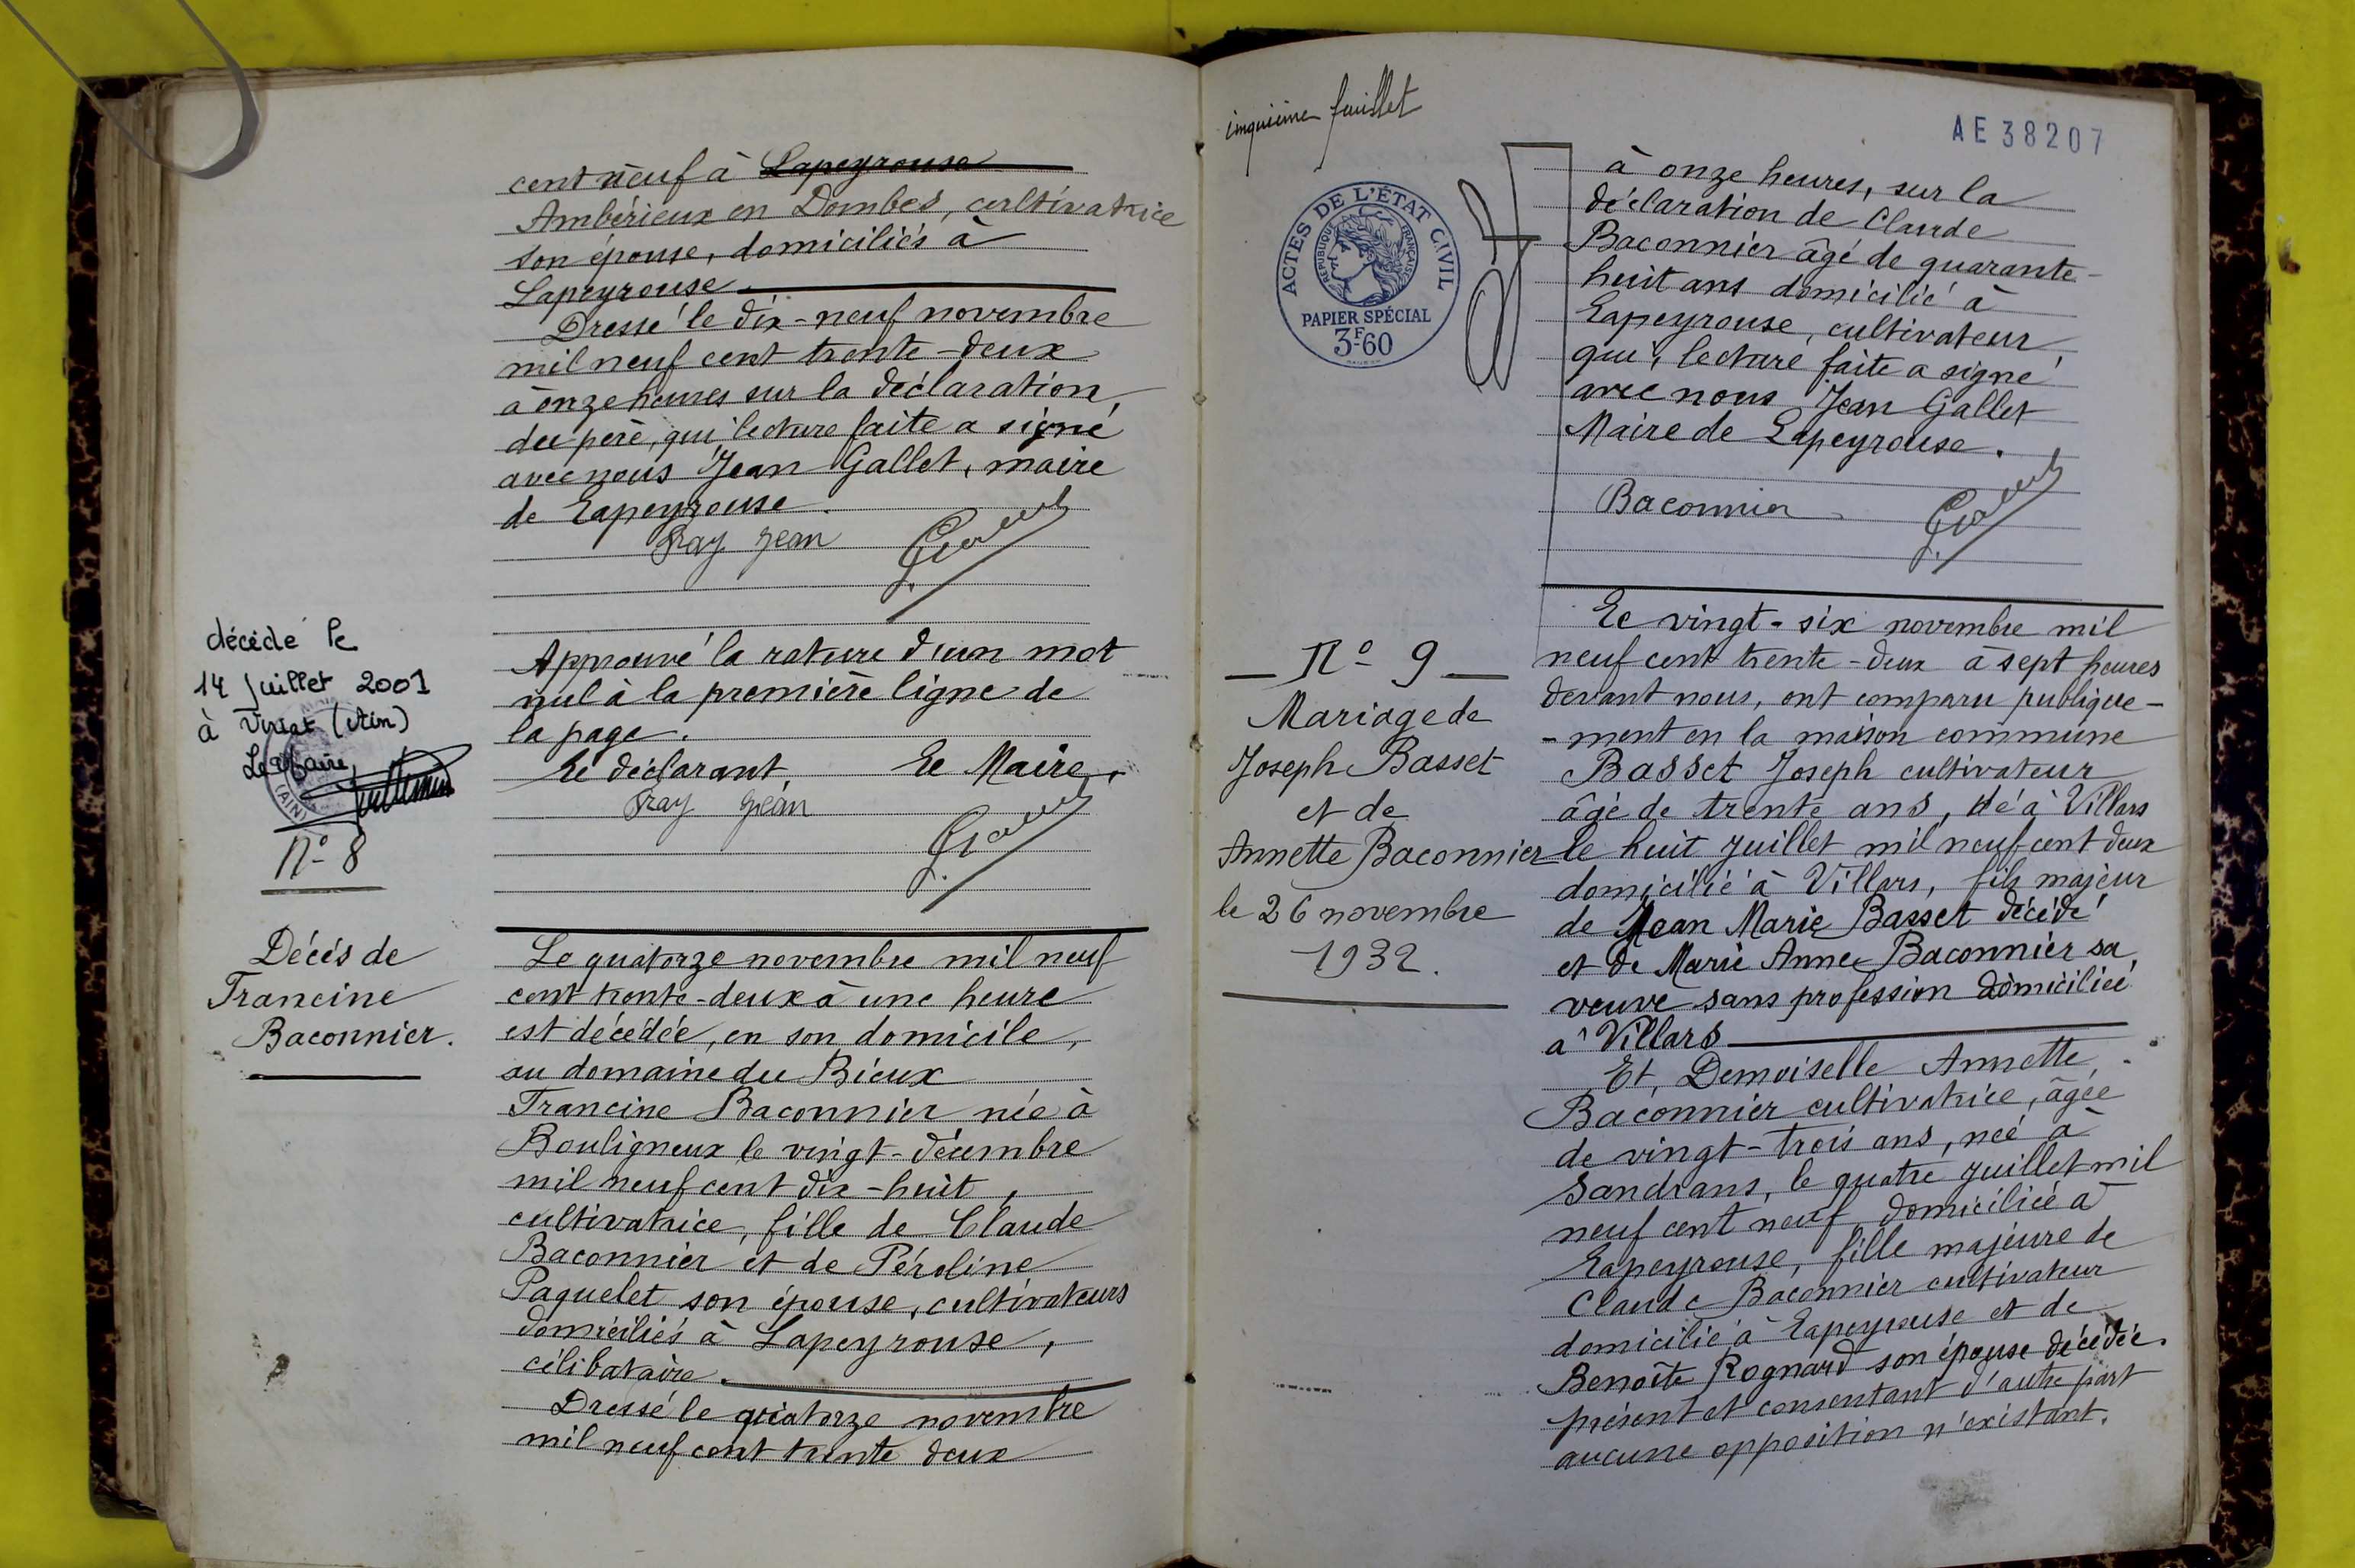 cent neuf à Lapeyrouse
Ambérieux en Dombes, cultivatrice
son épouse, domiciliés à
Lapeyrouse
Dressé le dix-neuf novembre
mil neuf cent trente-deux
à onze heures sur la déclaration
du père, qui, lecture faite a signé
avec nous Jean Gallet, maire
de Lapeyrouse.
Ray Jean
Approuvé la rature d'un mot
nul à la première ligne de
la page.
Le déclarant, Le Maire,
Ray Jean
décédé le
14 juillet 2001
à Viriat (Ain)
Le Maire,
(AIN)
N° 8
Décès de
Francine
Baconnier.
Le quatorze novembre mil neuf
cent trente-deux à une heure
est décédée, en son domicile,
au domaine du Bieux
Francine Baconnier née à
Bouligneux le vingt-décembre
mil neuf cent dix-huit,
cultivatrice, fille de Claude
Baconnier et de Péroline
Paquelet son épouse, cultivateurs
domiciliés à Lapeyrouse,
célibataire.
Dressé le quatorze novembre
mil neuf cent trente deux
inquième feuillet
AE 38207
ACTES DE L'ÉTAT CIVIL
RÉPUBLIQUE FRANÇAISE
PAPIER SPÉCIAL
3F60
à onze heures, sur la
déclaration de Claude
Baconnier âgé de quarante-
huit ans domicilié à
Lapeyrouse, cultivateur
qui, lecture faite a signé
avec nous Jean Gallet
Maire de Lapeyrouse.
Baconnier
N° 9
Mariage de
Joseph Basset
et de
Annette Baconnier
le 26 novembre
1932.
Le vingt-six novembre mil
neuf cent trente-deux à sept heures
devant nous, ont comparu publique-
-ment en la maison commune
Basset Joseph cultivateur
âgé de trente ans, né à Villars
le huit juillet mil neuf cent deux
domicilié à Villars, fils majeur
de Jean Marie Basset décédé
et de Marie Anne Baconnier sa
veuve sans profession domiciliée
à Villars
Et, Demoiselle Annette
Baconnier cultivatrice, âgée
de vingt-trois ans, née à
Sandrans, le quatre juillet mil
neuf cent neuf domiciliée à
Lapeyrouse, fille majeure de
Claude Baconnier cultivateur
domicilié à Lapeyrouse et de
Benoîte Rognard son épouse décédée.
présent et consentant d'autre part
aucune opposition n'existant.